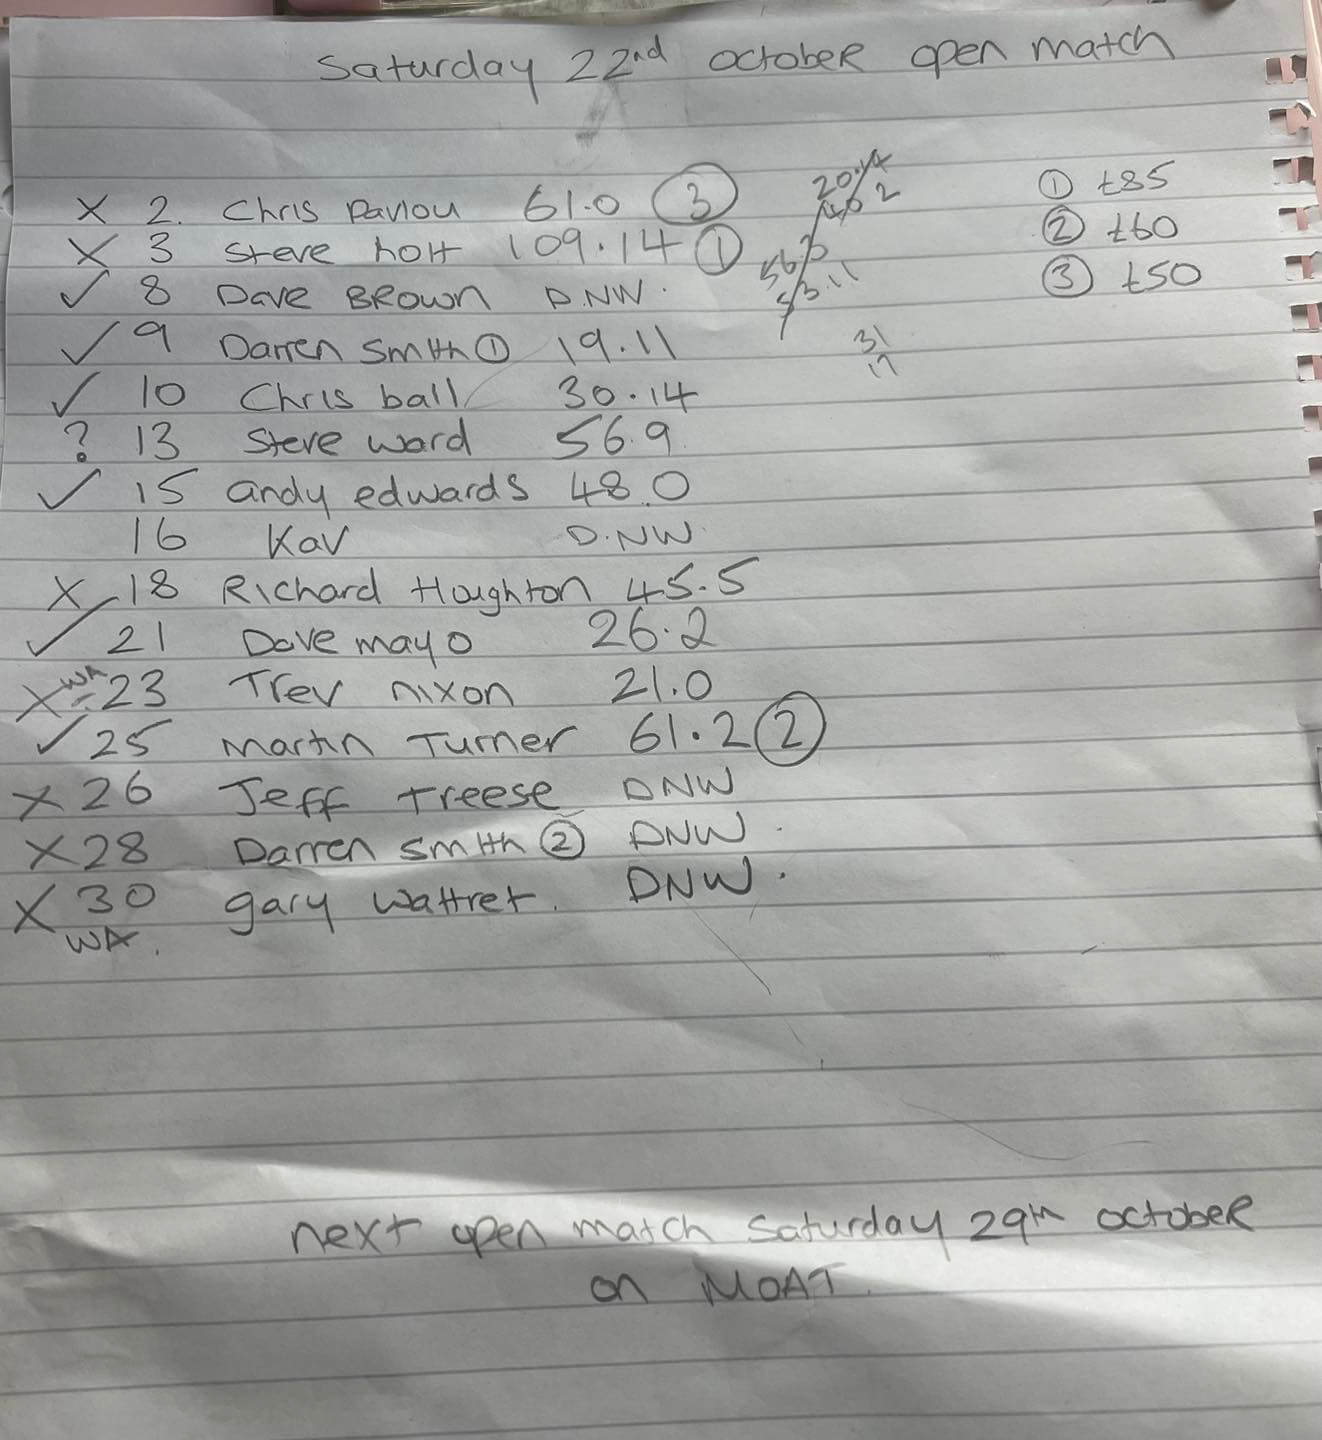 Saturday 22nd October open match
X 2. Chris Pavlou 61.0 ③ ① £85
X 3 Steve holt 109.14 ① ② £60
✓ 8 Dave Brown D.NW. ③ £50
✓ 9 Darren Smith ① 19.11
✓ 10 Chris ball 30.14
? 13 Steve ward 56.9
✓ 15 andy edwards 48.0
16 Kav D.NW.
X 18 Richard Houghton 45.5
✓ 21 Dave mayo 26.2
X WA 23 Trev nixon 21.0
✓ 25 Martin Turner 61.2 ②
X 26 Jeff Treese DNW
X 28 Darren Smith ② DNW.
X 30 gary wattret. DNW.
WA.
20.14
56
53.11
31
17
next open match Saturday 29th October
on MOAT.